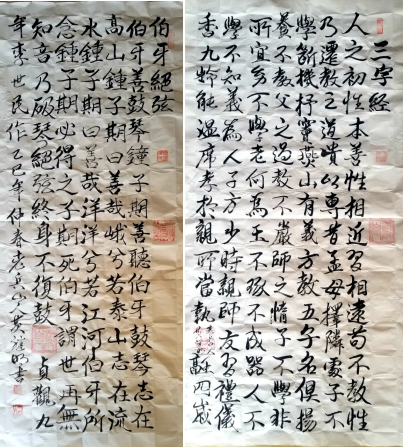 三字經
人之初性本善性相近習相遠苟不教性
乃遷教之道貴以專昔孟母擇鄰處子不
學斷機杼竇燕山有義方教五子名俱揚
養不教父之過教不嚴師之惰子不學非
所宜幼不學老何為玉不琢不成器人不
學不知義為人子方少時親師友習禮儀
香九齡能溫席孝於親所當執融四歲
伯牙絕弦
伯牙善鼓琴鍾子期善聽伯牙鼓琴志在
高山鍾子期曰善哉峨兮若泰山志在流
水鍾子期曰善哉洋洋兮若江河伯牙所
念鍾子期必得之子期死伯牙謂世再無
知音乃破琴絕弦終身不復鼓 貞觀九
年李世民作 乙巳年仲春老兵山黃 明書